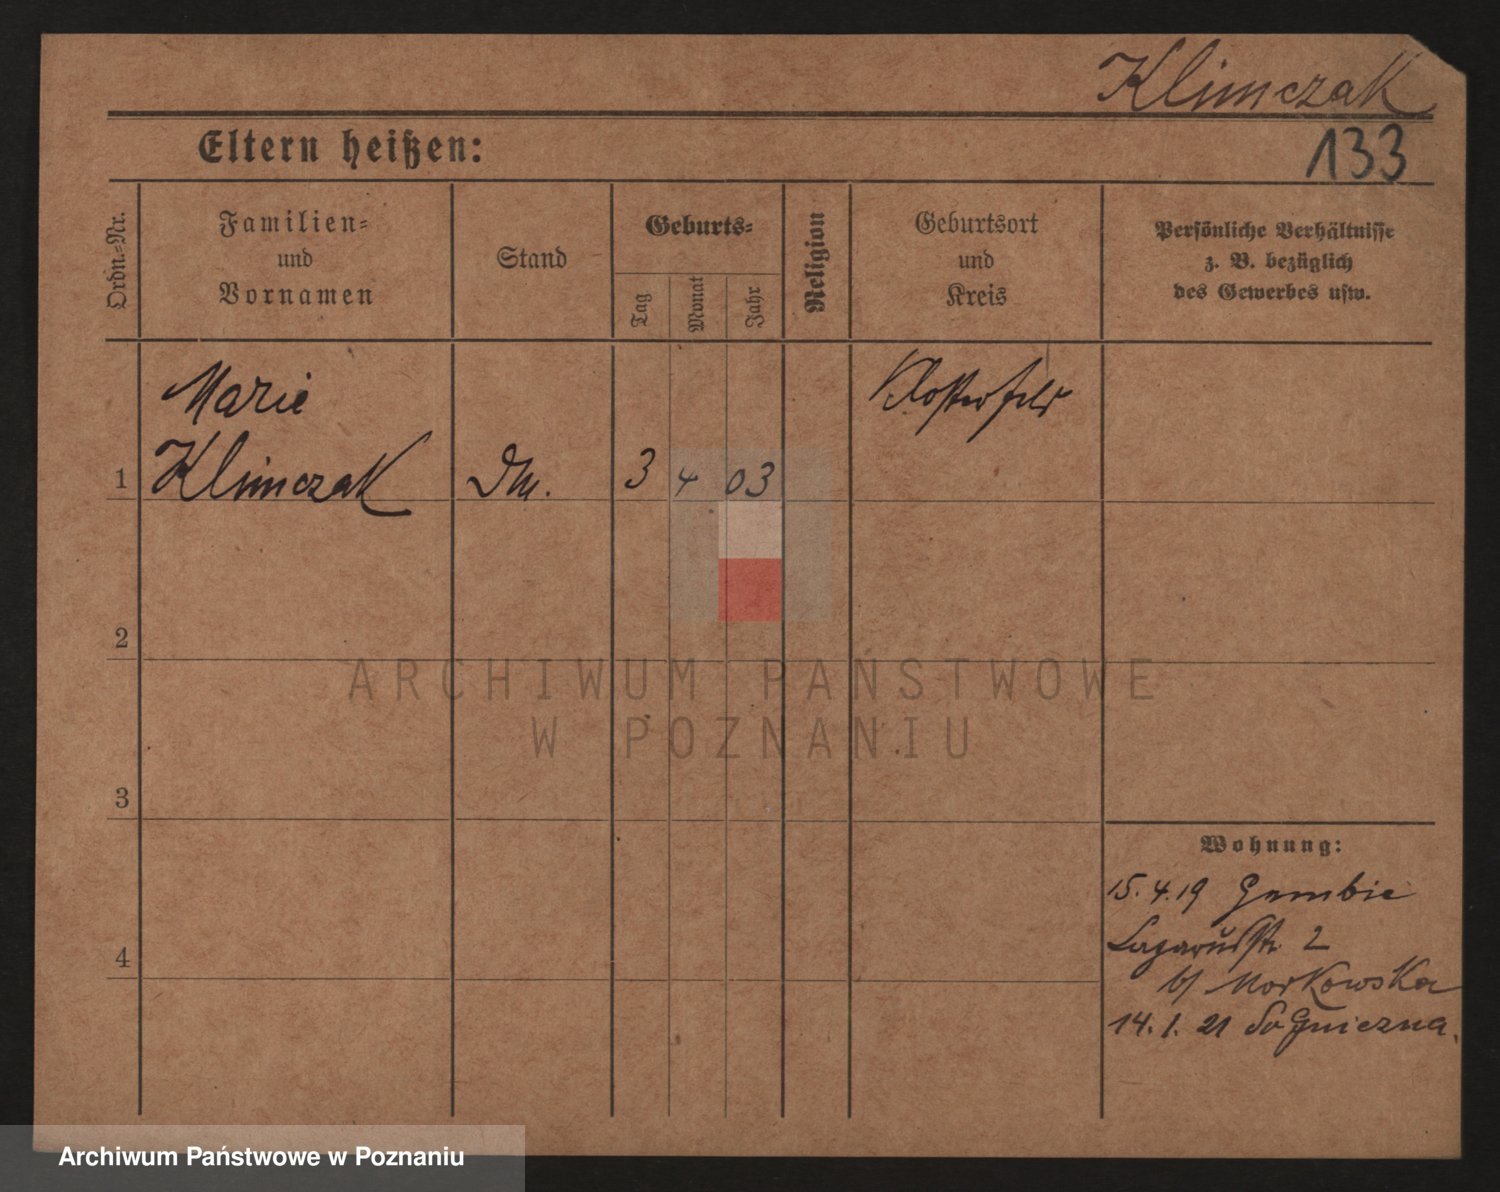 Klimczak
133
Eltern heißen:
Ordn.-Nr.
Familien-
und
Vornamen
Stand
Geburts-
Tag
Monat
Jahr
Religion
Geburtsort
und
Kreis
Persönliche Verhältnisse
z. B. bezüglich
des Gewerbes usw.
Marie
Klimczak
Dm.
3
4
03
Klosterfeld
1
2
3
4
Wohnung:
15. 4. 19 Gembie
Lazarusstr. 2
b/ Morkowska
14. 1. 21 do Gniezna.
ARCHIWUM PAŃSTWOWE
W POZNANIU
Archiwum Państwowe w Poznaniu